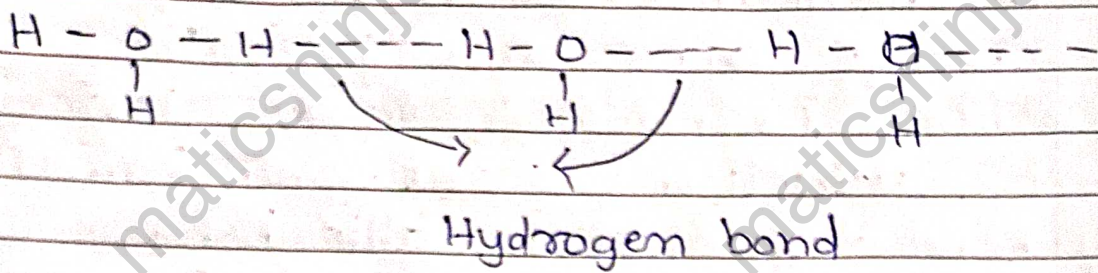 H - O - H ---- H - O ---- H - O ----
H H H
Hydrogen bond
maticsninj
maticsninj